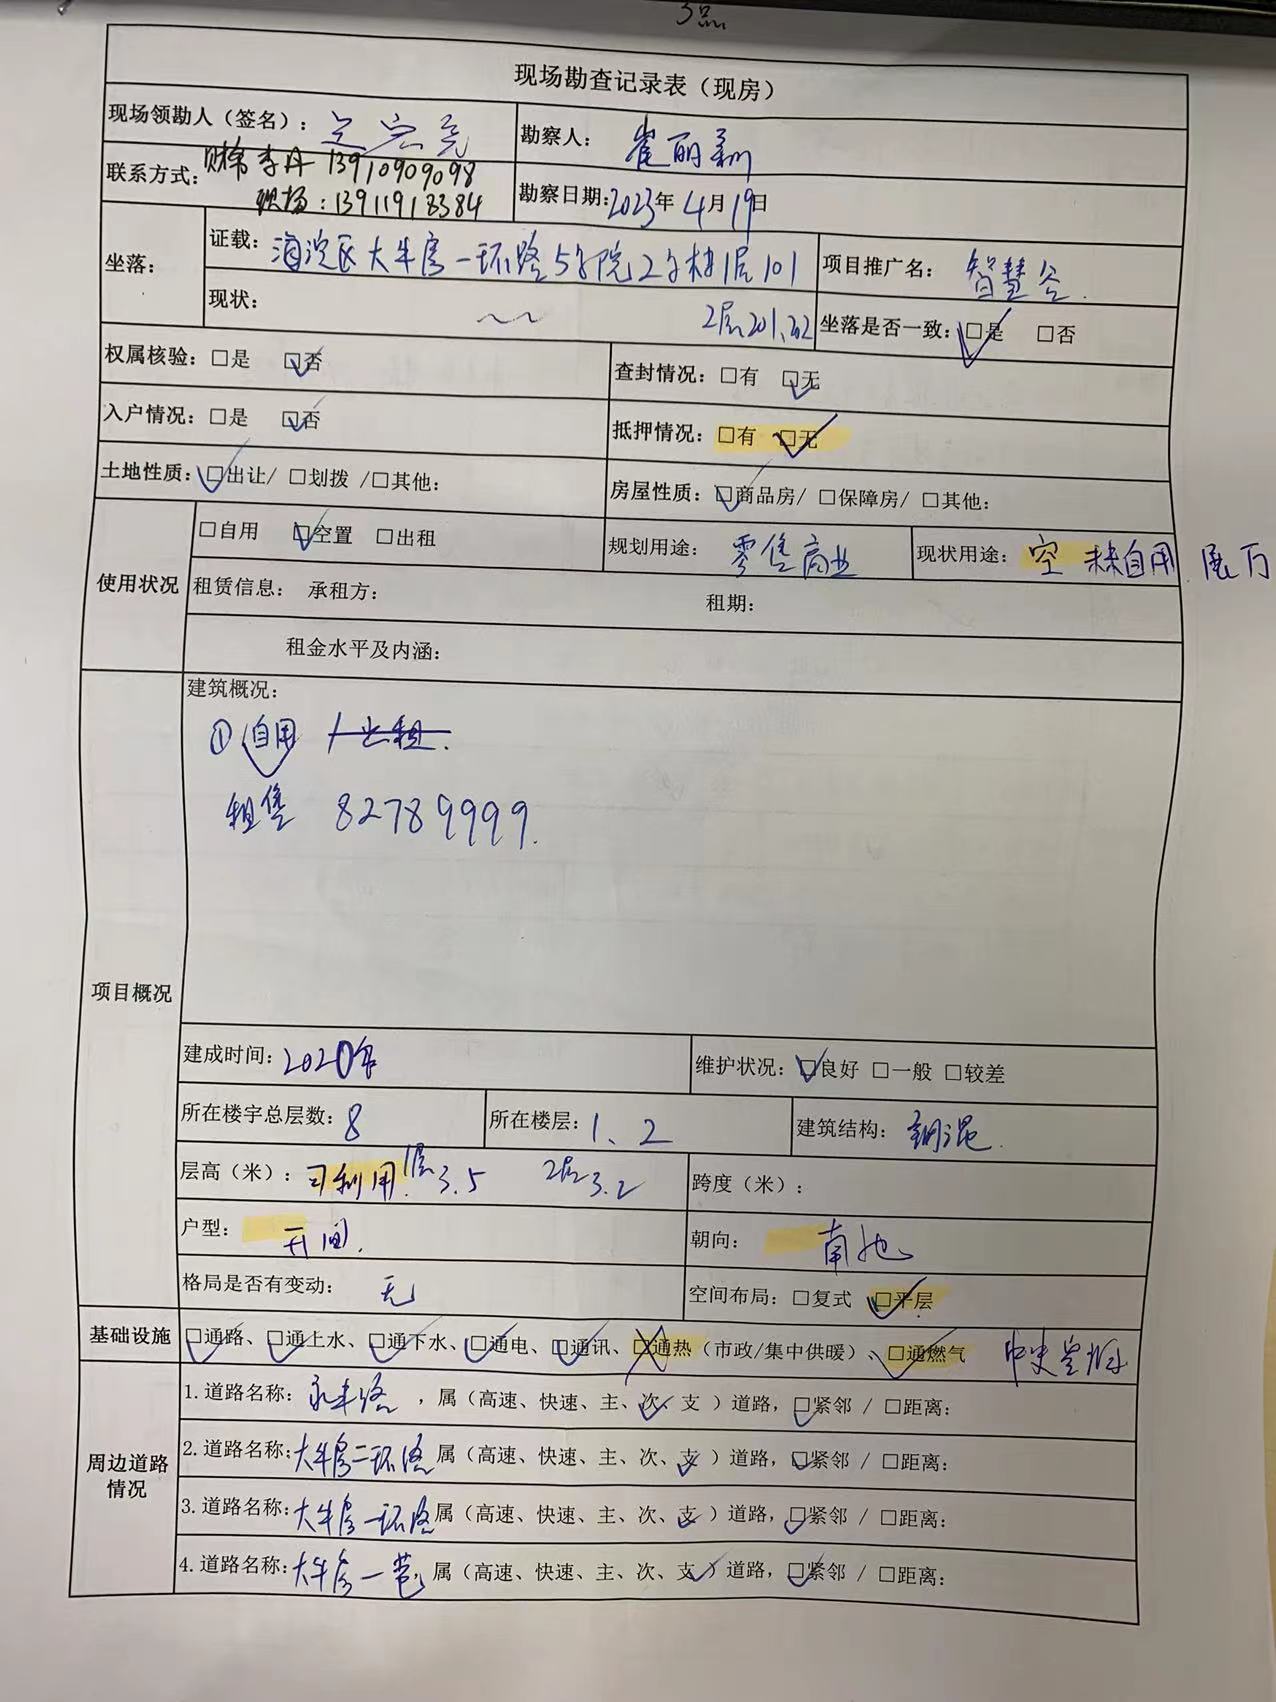 3点
现场勘查记录表（现房）
现场领勘人（签名）：
勘察人： 崔丽
联系方式： 财务 李丹 13910909098
现场：13911918384
勘察日期：2023年 4月19日
坐落：
证载： 海淀区大牛房一环路5号院2号楼1层101
2层201、202
项目推广名： 智慧谷
现状：
坐落是否一致：☑是 □否
权属核验：□是 ☑否
查封情况：□有 ☑无
入户情况：□是 ☑否
抵押情况：□有 ☑无
土地性质：☑出让/ □划拨 /□其他：
房屋性质：☑商品房/ □保障房/ □其他：
使用状况
□自用 ☑空置 □出租
规划用途： 零售商业
现状用途： 空 未来自用 展厅
租赁信息： 承租方： 租期：
租金水平及内涵：
项目概况
建筑概况：
① 自用 出租.
租售 82789999.
建成时间：2020年
维护状况：☑良好 □一般 □较差
所在楼宇总层数：8
所在楼层：1、2
建筑结构：钢混.
层高（米）：可利用 1层3.5 2层3.2
跨度（米）：
户型： 开间.
朝向： 南北
格局是否有变动： 无
空间布局：□复式 ☑平层
基础设施
☑通路、☑通上水、☑通下水、☑通电、☑通讯、☒通热（市政/集中供暖）、☑通燃气 中央空调
周边道路情况
1.道路名称：永丰路 ，属（高速、快速、主、次✓、支 ）道路，☑紧邻 / □距离：
2.道路名称：大牛房二环路 属（高速、快速、主、次、支✓）道路，☑紧邻 / □距离：
3.道路名称：大牛房一环路 属（高速、快速、主、次、支✓）道路，☑紧邻 / □距离：
4.道路名称：大牛房一街，属（高速、快速、主、次、支✓）道路，☑紧邻 / □距离：